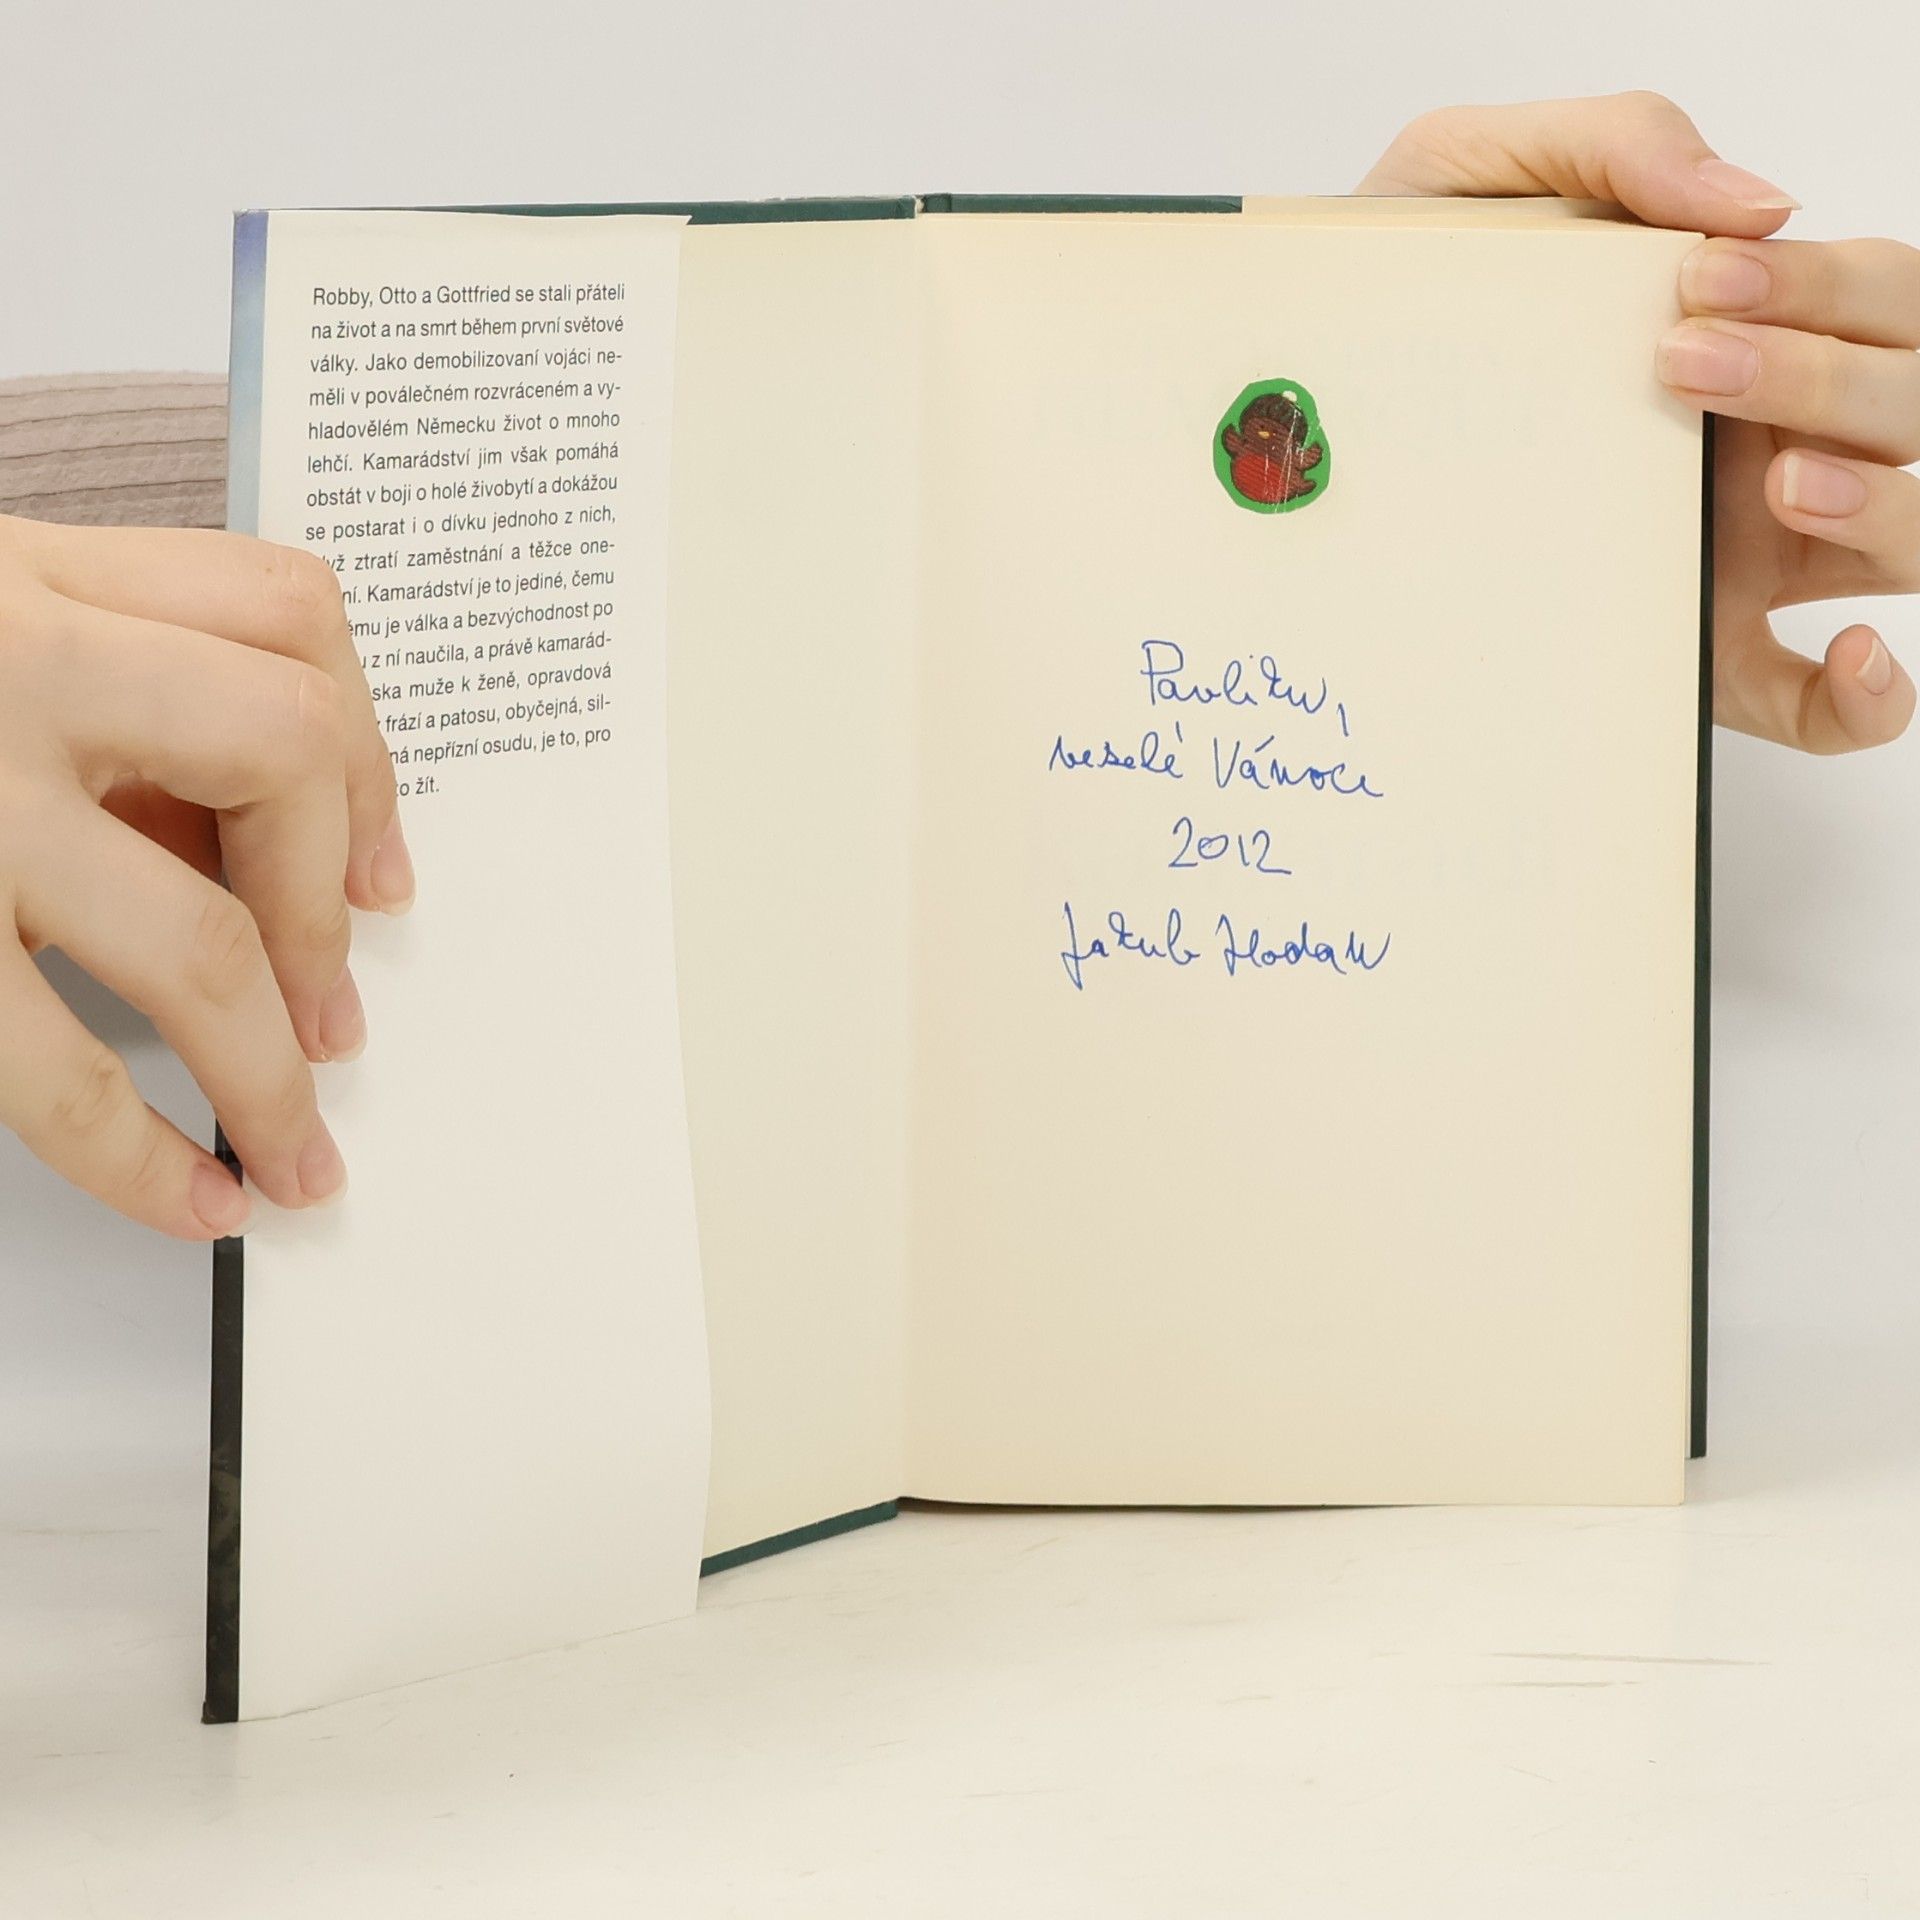 Robby, Otto a Gottfried se stali přáteli
na život a na smrt během první světové
války. Jako demobilizovaní vojáci ne-
měli v poválečném rozvráceném a vy-
hladovělém Německu život o mnoho
lehčí. Kamarádství jim však pomáhá
obstát v boji o holé živobytí a dokážou
se postarat i o dívku jednoho z nich,
ztratí zaměstnání a těžce one-
Kamarádství je to jediné, čemu
je válka a bezvýchodnost po
z ní naučila, a právě kamarád-
muže k ženě, opravdová
frází a patosu, obyčejná, sil-
nepřízní osudu, je to, pro
žít.
Pavlíku,
veselé Vánoce
2012
Jakub